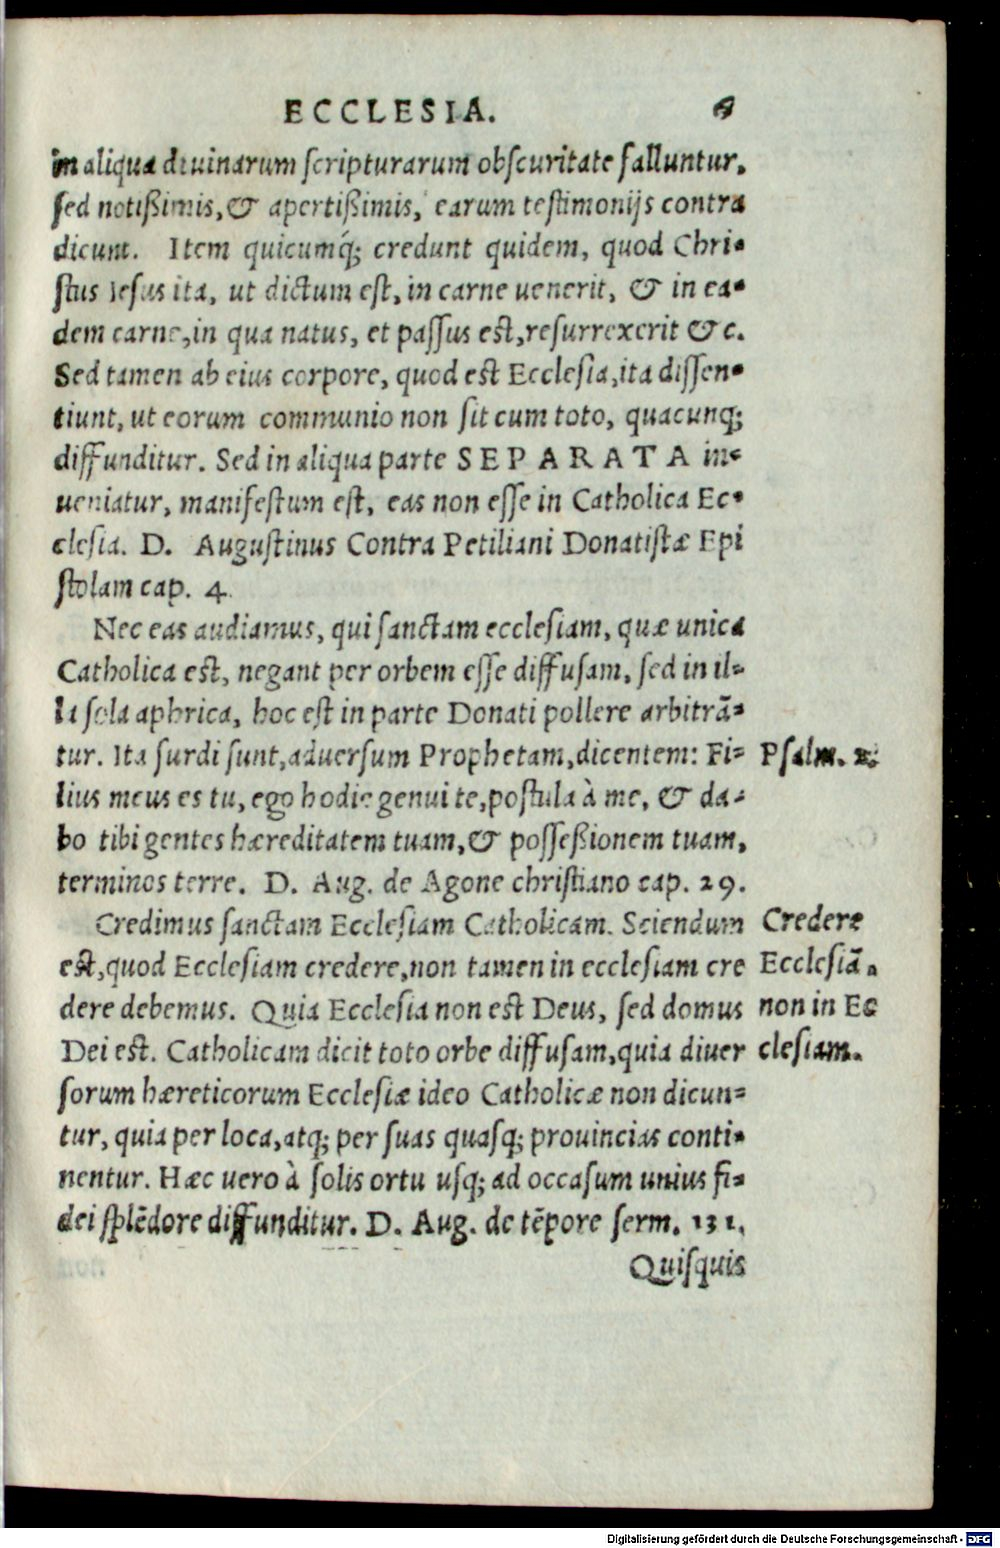 ECCLESIA.
in aliqua diuinarum scripturarum obscuritate falluntur,
sed notißimis, & apertißimis, earum testimonijs contra
dicunt. Item quicumq́; credunt quidem, quod Chri-
stus Iesus ita, ut dictum est, in carne uenerit, & in ea-
dem carne, in qua natus, et passus est, resurrexerit & c.
Sed tamen ab eius corpore, quod est Ecclesia, ita dissen-
tiunt, ut eorum communio non sit cum toto, quacunq;
diffunditur. Sed in aliqua parte SEPARATA in-
ueniatur, manifestum est, eas non esse in Catholica Ec-
clesia. D. Augustinus Contra Petiliani Donatistæ Epi
stolam cap. 4.
Nec eas audiamus, qui sanctam ecclesiam, quæ unica
Catholica est, negant per orbem esse diffusam, sed in il-
la sola aphrica, hoc est in parte Donati pollere arbitrā-
tur. Ita surdi sunt, aduersum Prophetam, dicentem: Fi-
Psalm. 2.
lius meus es tu, ego hodie genui te, postula à me, & da-
bo tibi gentes hæreditatem tuam, & possessionem tuam,
terminos terre. D. Aug. de Agone christiano cap. 29.
Credimus sanctam Ecclesiam Catholicam. Sciendum
Credere
est, quod Ecclesiam credere, non tamen in ecclesiam cre
Ecclesiā,
dere debemus. Quia Ecclesia non est Deus, sed domus
non in Ec
Dei est. Catholicam dicit toto orbe diffusam, quia diuer
clesiam.
sorum hæreticorum Ecclesiæ ideo Catholicæ non dicun-
tur, quia per loca, atq; per suas quasq; prouincias conti-
nentur. Hæc uero à solis ortu usq; ad occasum unius fi-
dei splēdore diffunditur. D. Aug. de tēpore serm. 131.
Quisquis
Digitalisierung gefördert durch die Deutsche Forschungsgemeinschaft - DFG